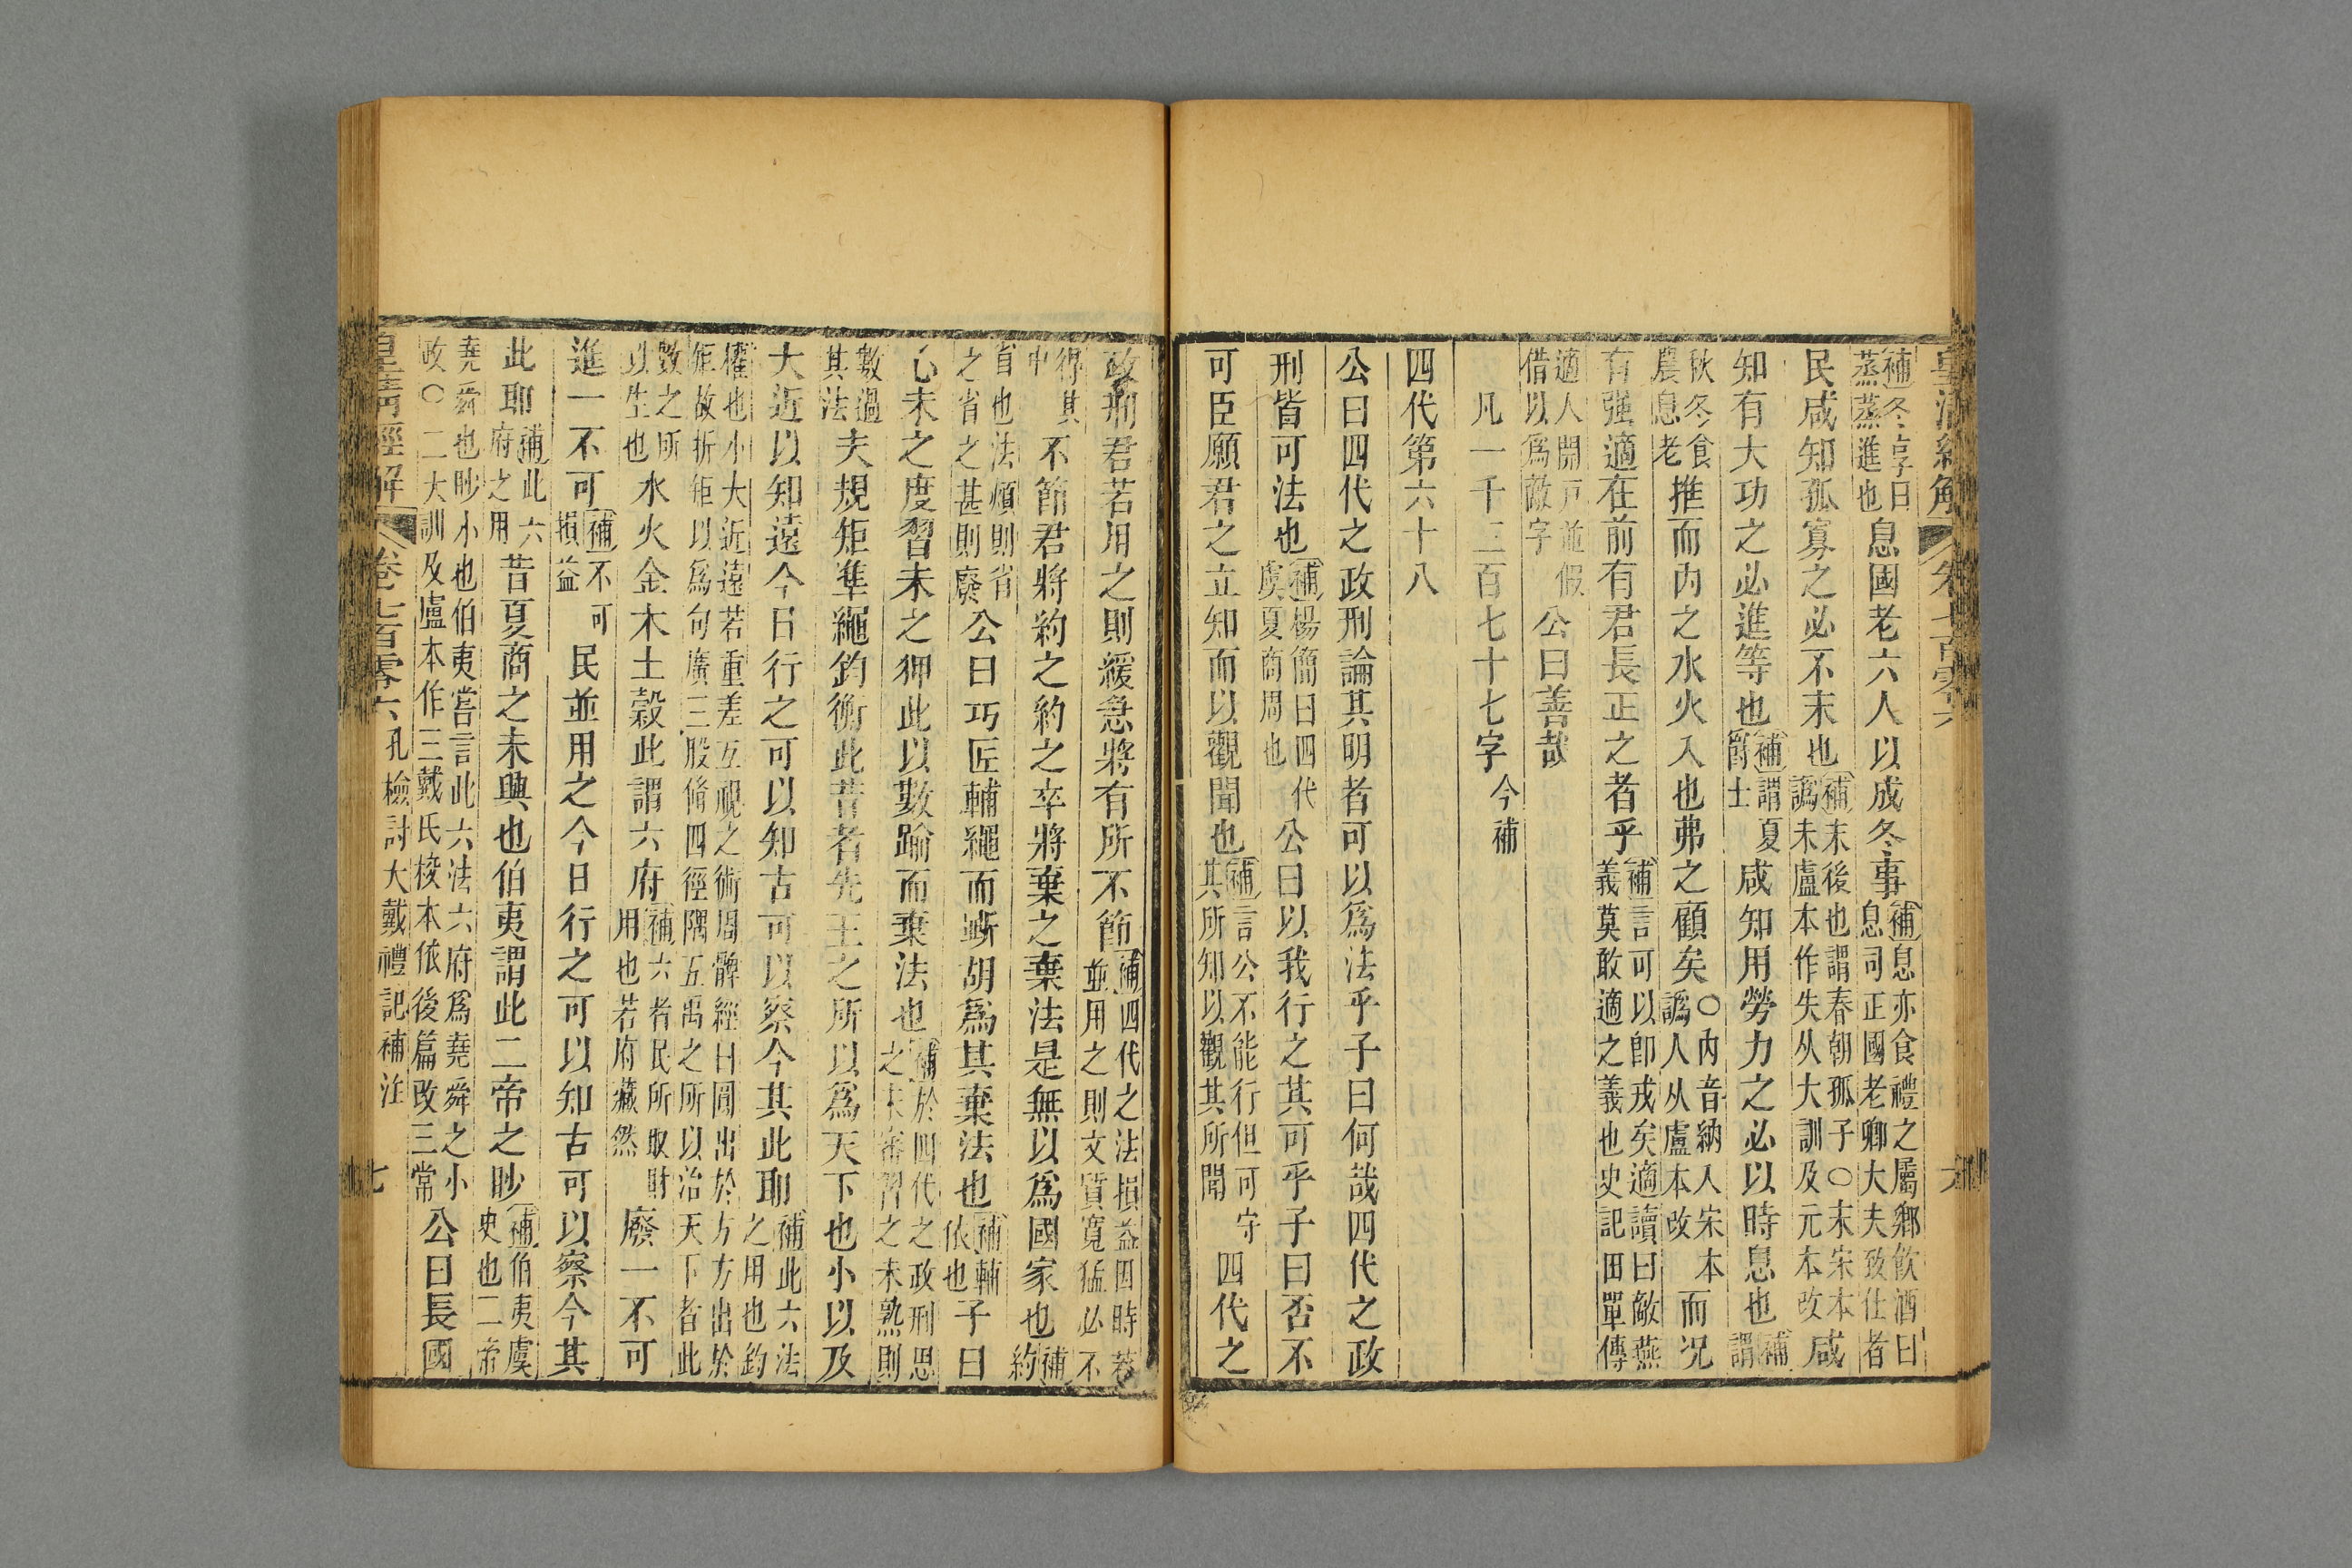 皇清經解 卷七百零六 六
補冬享曰蒸蒸進也息國老六人以成冬事補息亦食禮之屬鄉飲酒曰息司正國老卿大夫致仕者
民咸知孤寡之必不末也補末後也謂春朝孤子○末宋本譌未盧本作失从大訓及元本改咸
知有大功之必進等也補謂夏爵士咸知用勞力之必以時息也補謂
秋冬食農息老推而內之水火入也弗之顧矣○內音納入宋本譌人从盧本改而况
有强適在前有君長正之者乎補言可以卽戎矣適讀曰敵燕義莫敢適之義也史記田單傳
適人開戸並假借以爲敵字公曰善哉
凡一千三百七十七字今補
四代第六十八
公曰四代之政刑論其明者可以爲法乎子曰何哉四代之政
刑皆可法也補楊簡曰四代虞夏商周也公曰以我行之其可乎子曰否不
可臣願君之立知而以觀聞也補言公不能行但可守其所知以觀其所聞四代之
政刑君若用之則緩急將有所不節補四代之法損益四時若並用之則文質寬猛必不
得其中不節君將約之約之卒將棄之棄法是無以爲國家也補約
省也法煩則省之省之甚則廢公曰巧匠輔繩而斲胡爲其棄法也補輔依也子曰
心未之度習未之狎此以數踰而棄法也補於四代之政刑思之未審習之未熟則
數過其法夫規矩準繩鈞衡此昔者先王之所以爲天下也小以及
大近以知遠今日行之可以知古可以察今其此耶補此六法之用也鈞
權也小大近遠若重差互視之術周髀經曰圓出於方方出於矩故折矩以爲句廣三股脩四徑隅五禹之所以治天下者此
數之所以生也水火金木土穀此謂六府補六者民所取財用也若府藏然廢一不可
進一不可補不可損益民並用之今日行之可以知古可以察今其
此耶補此六府之用昔夏商之未興也伯夷謂此二帝之眇補伯夷虞史也二帝
堯舜也眇小也伯夷嘗言此六法六府爲堯舜之小政○二大訓及盧本作三戴氏校本依後篇改三常公曰長國
皇清經解 卷七百零六 孔檢討大戴禮記補注 七